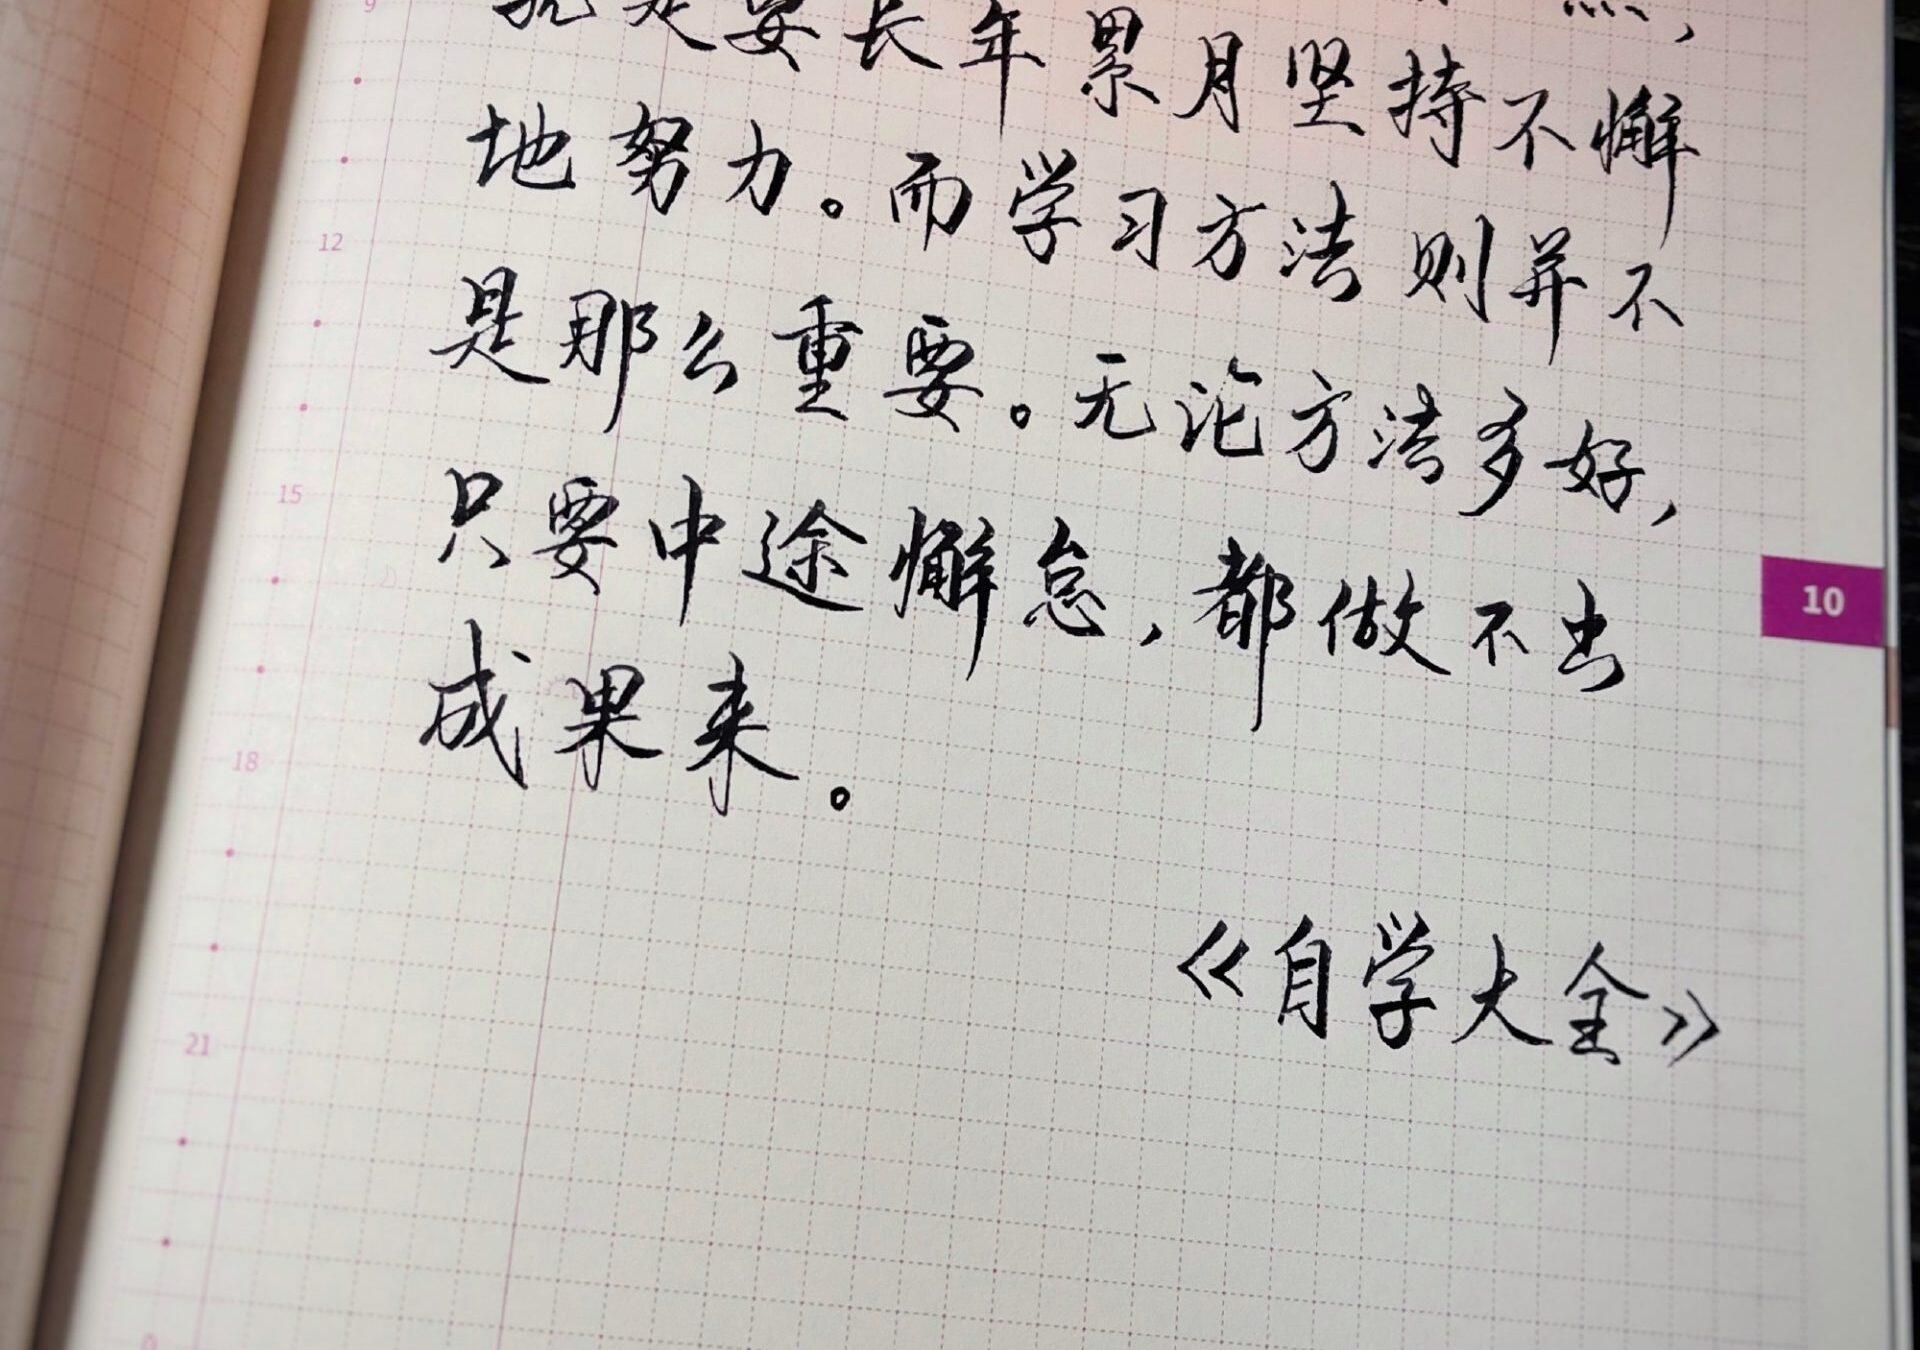 9
就是要长年累月坚持不懈
地努力。而学习方法则并不
12
是那么重要。无论方法多好,
15
只要中途懈怠,都做不出
10
成果来。
18
《自学大全》
21